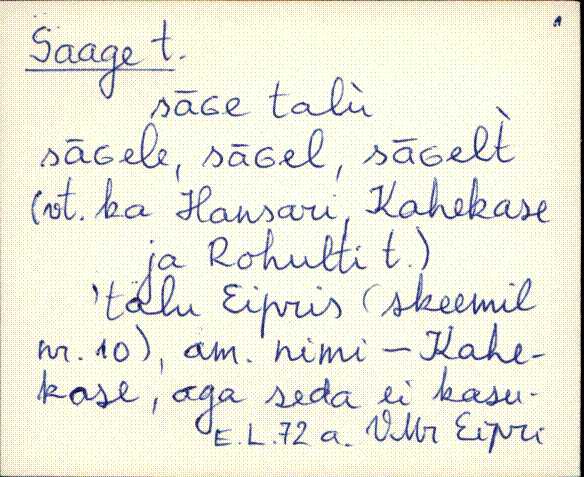 Saage t.
sāɢe talù
sāɢele, sāɢel, sāɢelt̀
(vt. ka Hansari, Kahekase
ja Rohulti t.)
'talu Eipris (skeemil
nr. 10), am. nimi – Kahe-
kase, aga seda ei kasu.
E.L.72 a. VMr Eipri